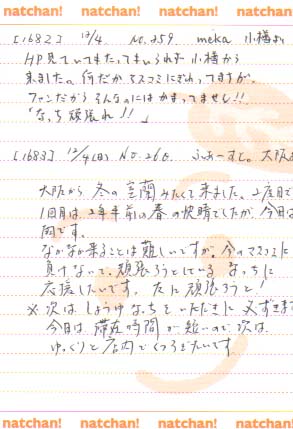 natchan! natchan! natchan! natchan!
[1682] 12/4. No.259. meka 小樽より
HP見ていつきたってもいられず小樽から
来ました。何だかマスコミにぎわってますが。
ファンだからそんなのにはかまってません!!
「なっち頑張れ!!」
[1683] 12/4(日) No.260. ふぁーすと。大阪よ
大阪から冬の室蘭みたくて来ました。2度目で
1回目は、2年半前の春の快晴でしたが、今日は
雨です。
なかなか来ることは難しいですが。今のマスコミに
負けないで、頑張ろうとしている なっちに
応援したいです。共に頑張ろうと!
※次は しょうゆ なっちを いただきに 必ずきます
今日は 滞在時間 が 短いので 次は
ゆっくりと店内でくつろぎたいです。
natchan! natchan! natchan! natchan!